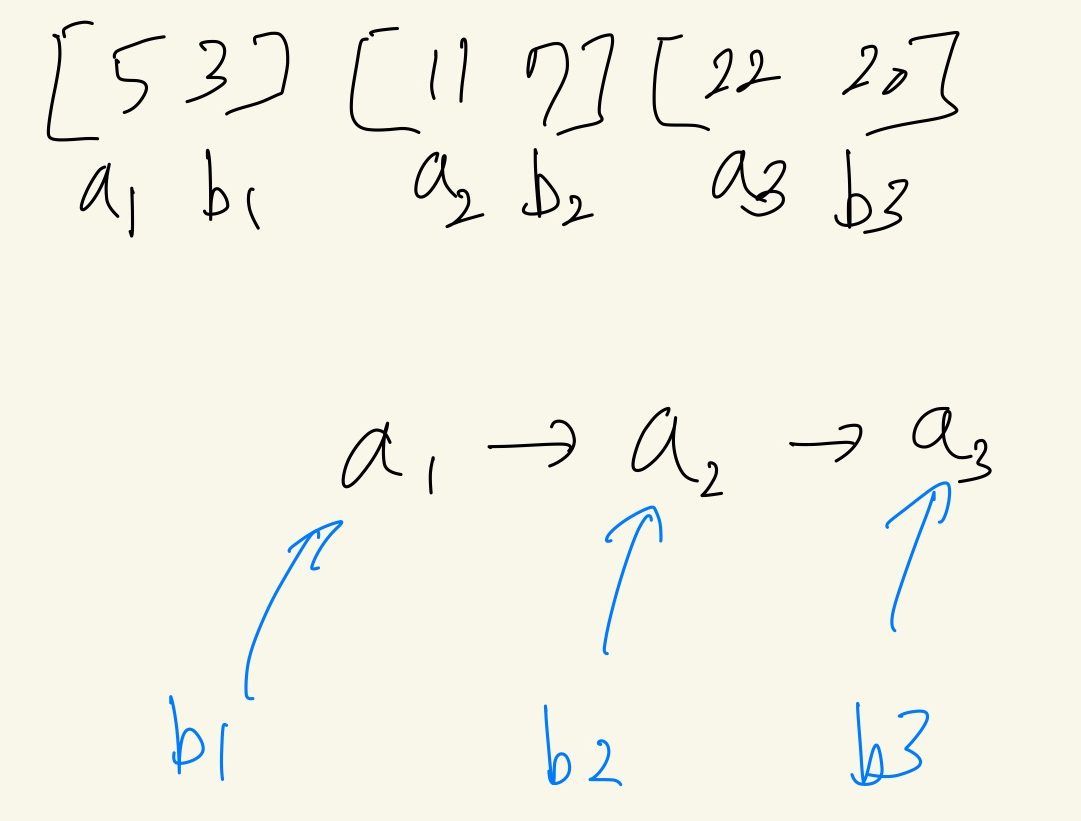 [5 3] [11 7] [22 20]
a₁ b₁ a₂ b₂ a₃ b₃
a₁ → a₂ → a₃
b1 b2 b3